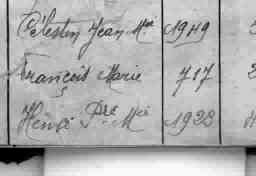 Célestin Jean Mie 1949
François Marie 717
Henri Pre Mie 1928